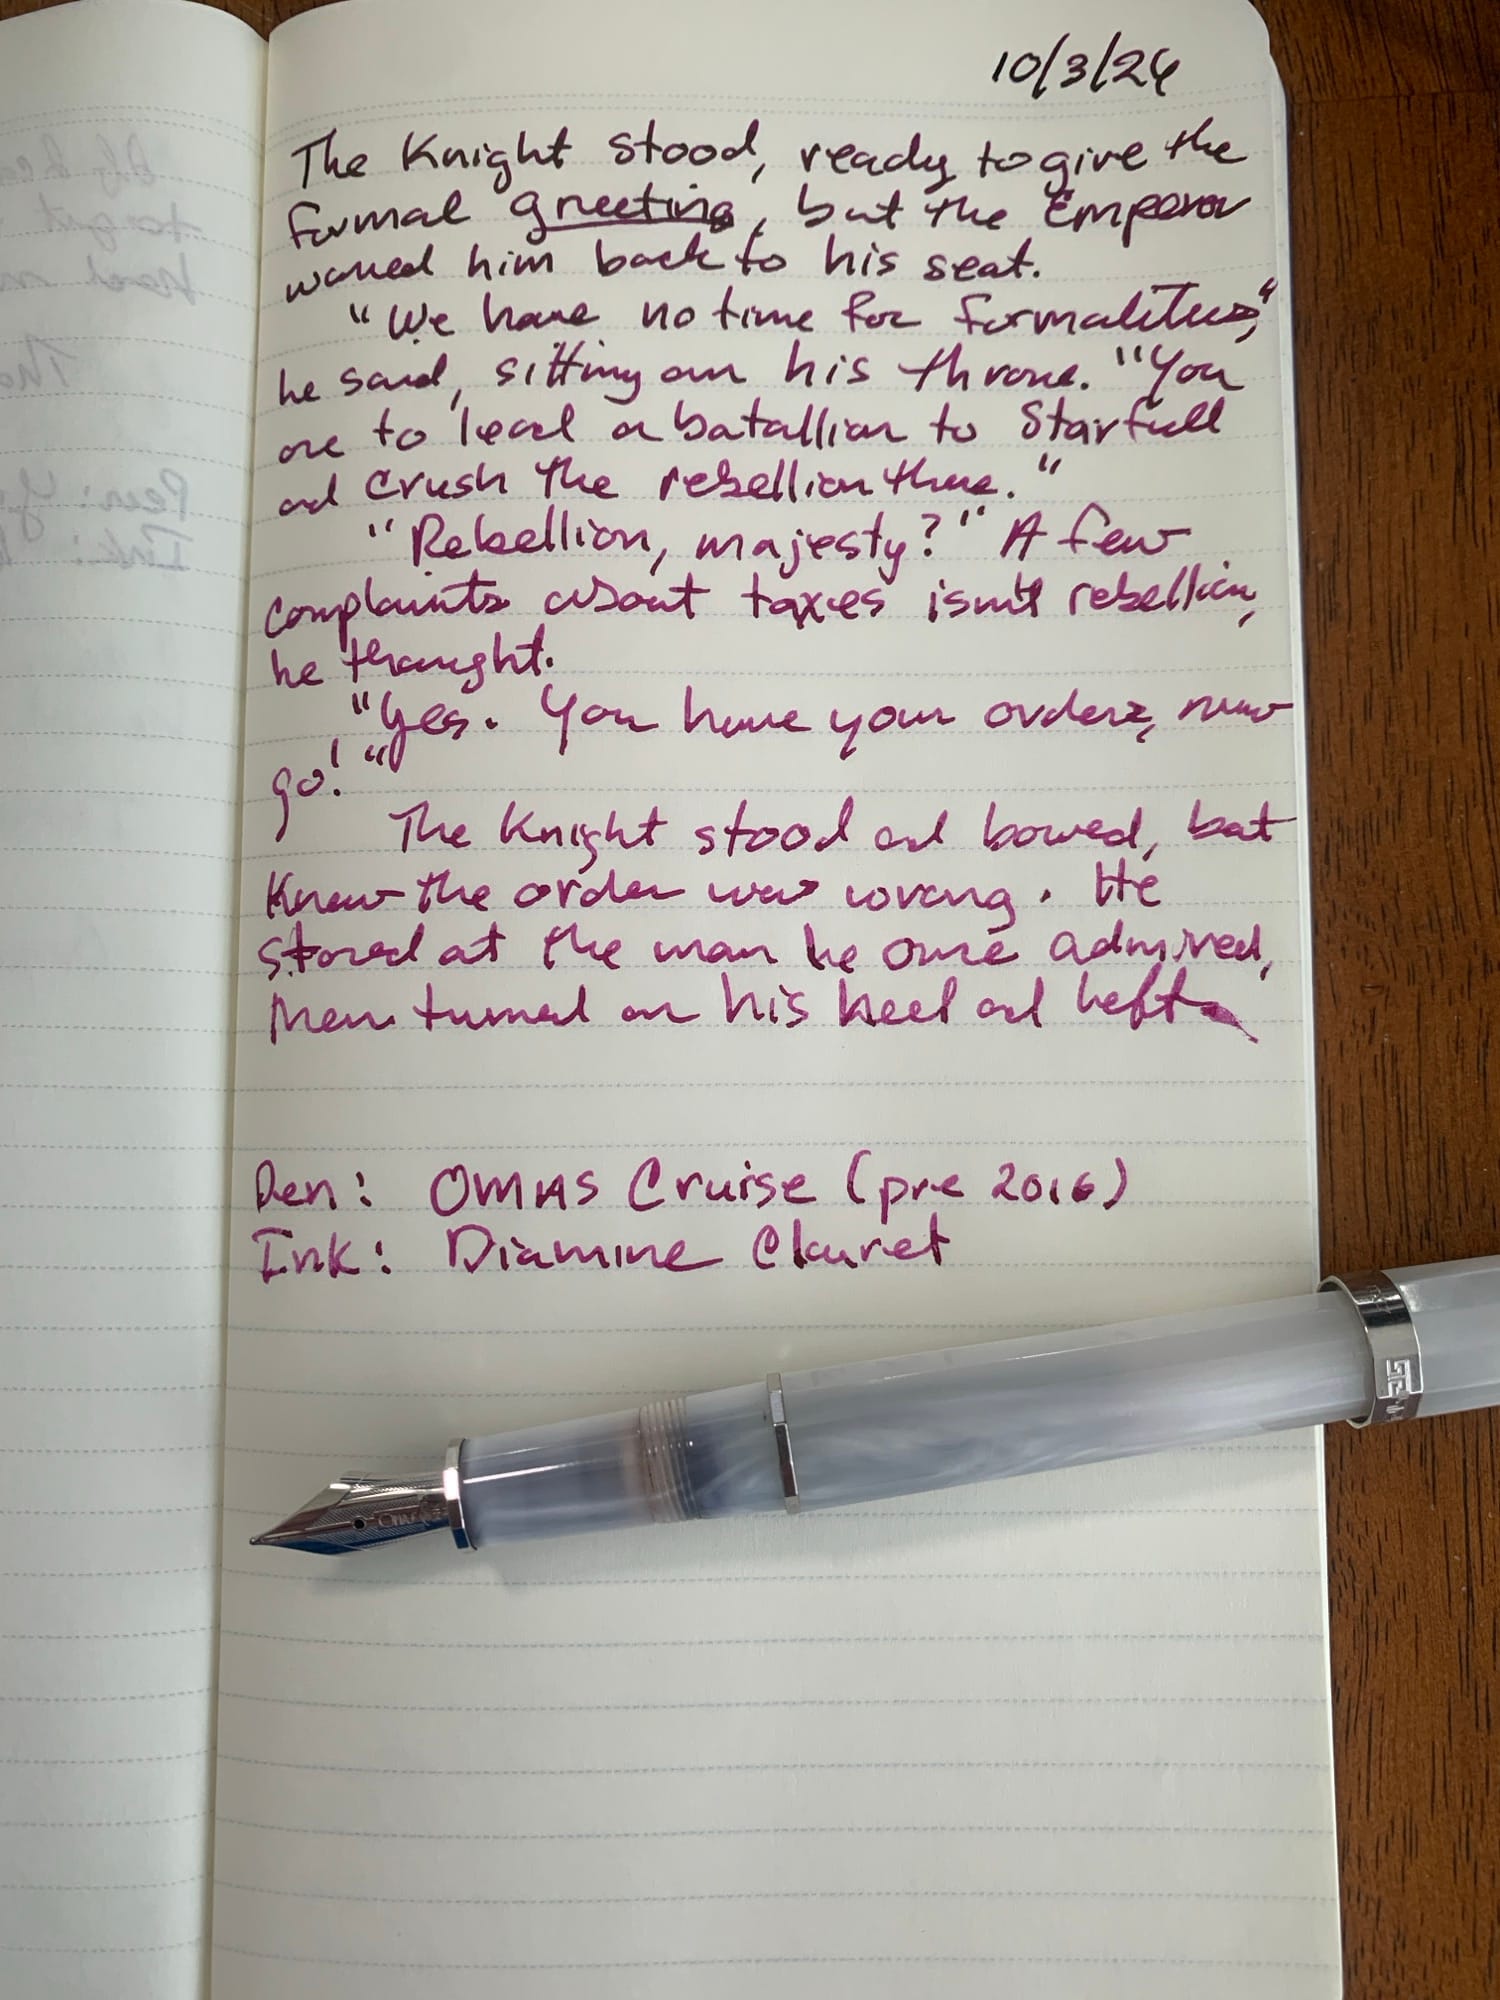 10/3/24
The Knight stood, ready to give the
formal greeting, but the Emperor
waved him back to his seat.
"We have no time for formalities,"
he said, sitting on his throne. "You
are to lead a batallion to Starfull
and crush the rebellion there."
"Rebellion, majesty?" A few
complaints about taxes isn't rebellion,
he thought.
"Yes. You have your orders, now
go!"
The Knight stood and bowed, but
knew the order was wrong. He
stared at the man he once admired,
then turned on his heel and left.
Pen: OMAS Cruise (pre 2016)
Ink: Diamine Claret